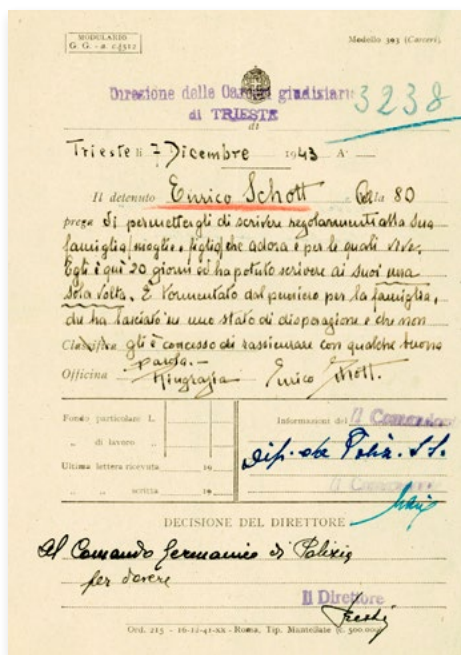 MODULARIO
G. G. - a. c.
Modello 393 (Carceri)
Direzione delle Carceri giudiziarie
di TRIESTE
di
3238
Trieste li 7 Dicembre 1943 A
Il detenuto Enrico Schott Cella 80
prega di permettergli di scrivere regolarmente alla sua
famiglia (moglie, figlio) che adora e per le quali vive.
Egli è qui 20 giorni ed ha potuto scrivere ai suoi una
sola volta. È tormentato dal pensiero per la famiglia,
che ha lasciato in uno stato di disperazione e che non
Classifica gli è concesso di rassicurare con qualche buona
parola.-
Officina Ringrazia Enrico Schott.
Fondo particolare L.
„ di lavoro „
Ultima lettera ricevuta 19
„ „ scritta 19
Informazioni del Il Comandante
dip. da Poliz. S.S.
Il Comandante
DECISIONE DEL DIRETTORE
Al Comando Germanico di Polizia
per dovere
Il Direttore
Ord. 215 - 16-12-41-XX - Roma, Tip. Mantellate (c. 500.000)